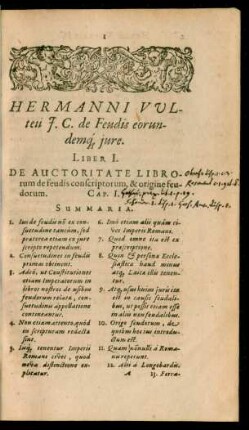 1
HERMANNI VUL-
teii J. C. de Feudis eorun-
demq́; jure.
LIBER I.
DE AUCTORITATE LIBRO-
rum de feudis conscriptorum, & origine feu-
dorum. CAP. I.
SUMMARIA.
1. Jus de feudis nō ex con-
suetudine tantùm, sed
praeterea etiam ex jure
scripto repetendum.
2. Consuetudines in feudis
primas obtinent.
3. Adeò, ut Constitutiones
etiam Imperatorum in
libros nostros de usibus
feudorum relatae, con-
suetudinum appellatione
contineantur.
4. Non etiam aternò, quòd
in scripturam redactæ
sint.
5. Iisq́; tenentur Imperii
Romani cives, quod
novâ distinctione ex-
plicatur.
6. Imò etiam alii quàm ci-
ves Imperii Romani.
7. Quod omne ita est ex
præscriptione.
8. Quin & persona Eccle-
siastica haud minus
acq́; Laica illis tenen-
tur.
9. Atq́; usus horum juris ita
est in causis feudali-
bus, ut possit etiam esse
in aliis non feudalibus.
10. Origo feudorum, de
quibus hoc jus introdu-
ctum est.
11. Quam quidam à Roma-
nis repetunt.
12. Alii à Longobardis.
A 13. Ferra-